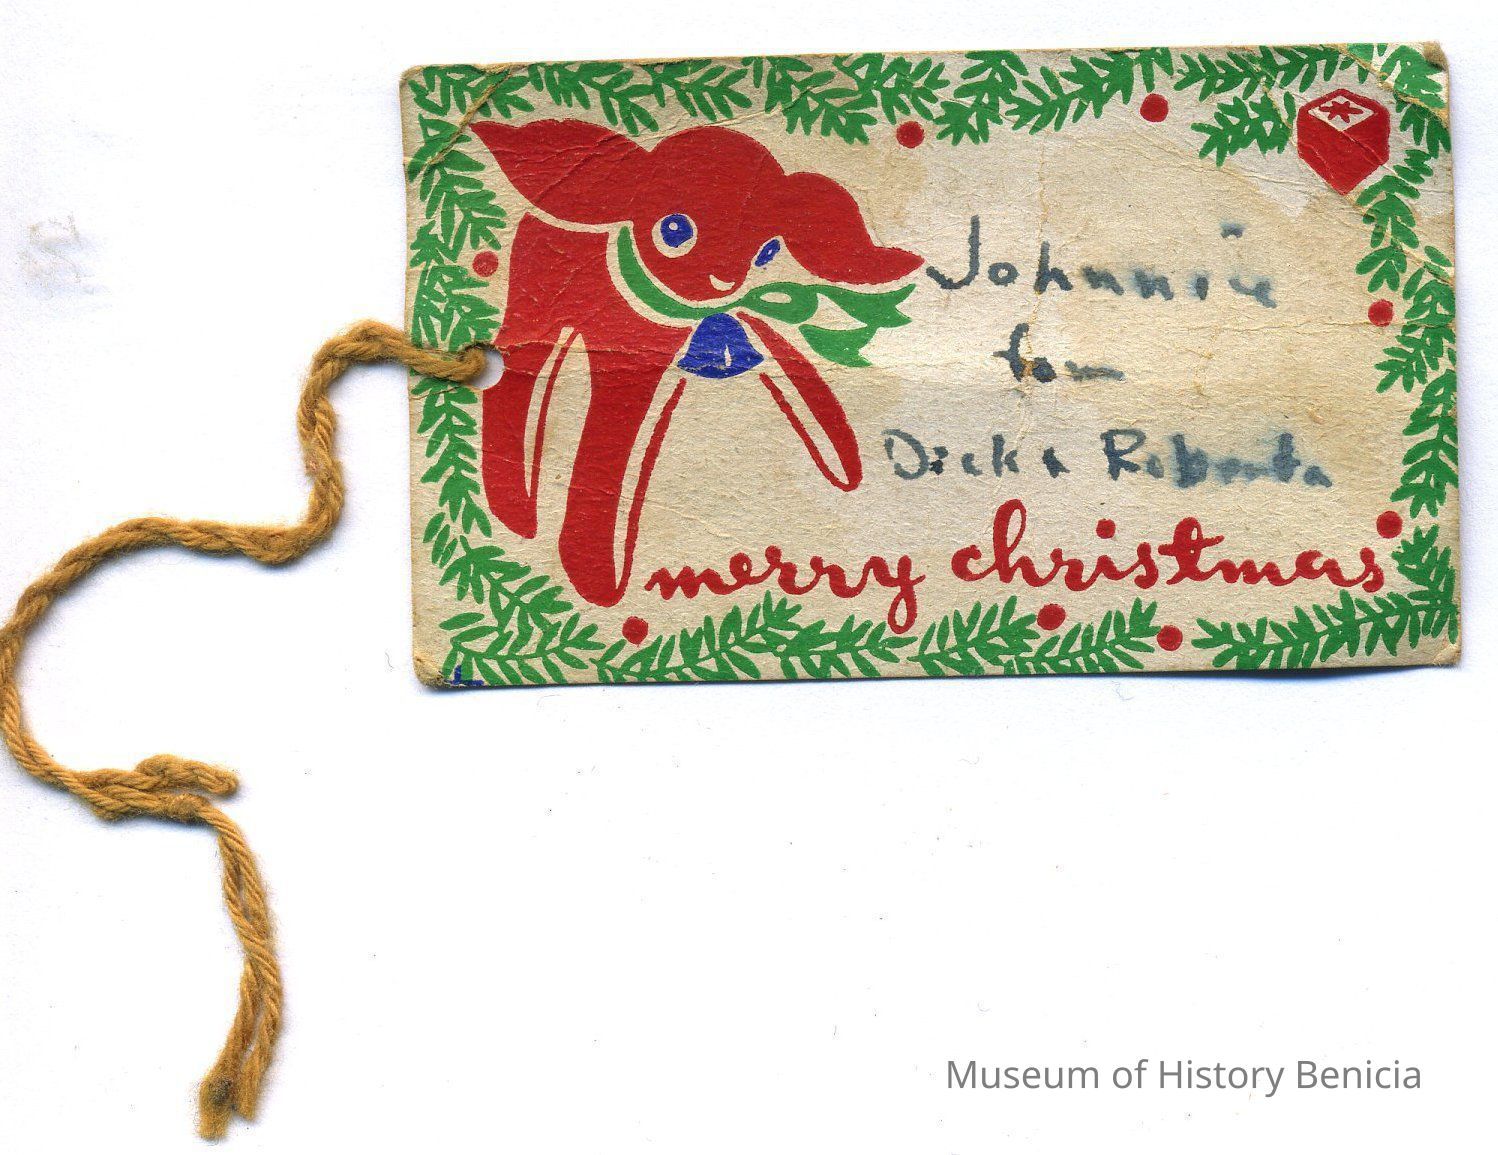 Johnnie
from
Dick & Roberta
merry christmas
Museum of History Benicia